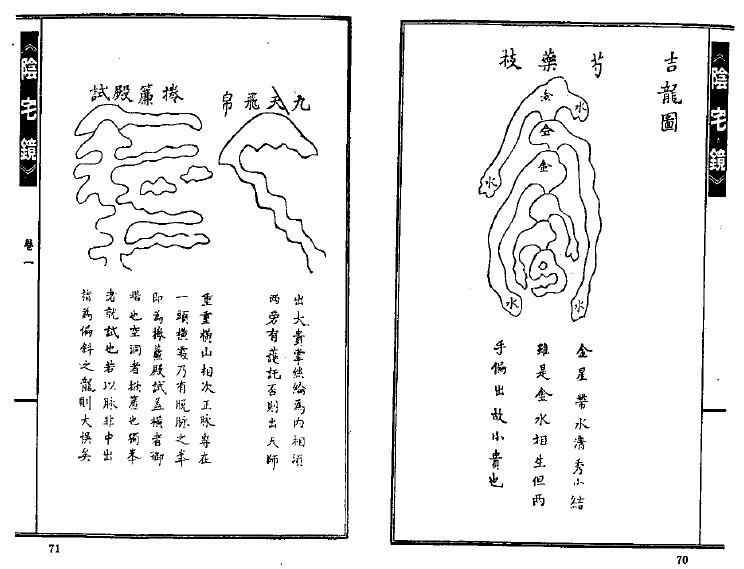 《陰宅鏡》
吉龍圖
芍藥枝
金
水
金
金
水
水
水
金星帶水清秀小結
雖是金水相生但两
手偏出故小貴也
70
九天飛帛
出大貴掌絲綸為内相須
两旁有護託否則出天師
捲簾殿試
重重橫山相次正脉專在
一頭橫處乃有脫脉之峯
即為捲簾殿試盖橫者御
堦也空洞者捲簾也獨峯
者就試也若以脉非中出
指為偏斜之龍則大悞矣
《陰宅鏡》
卷一
71